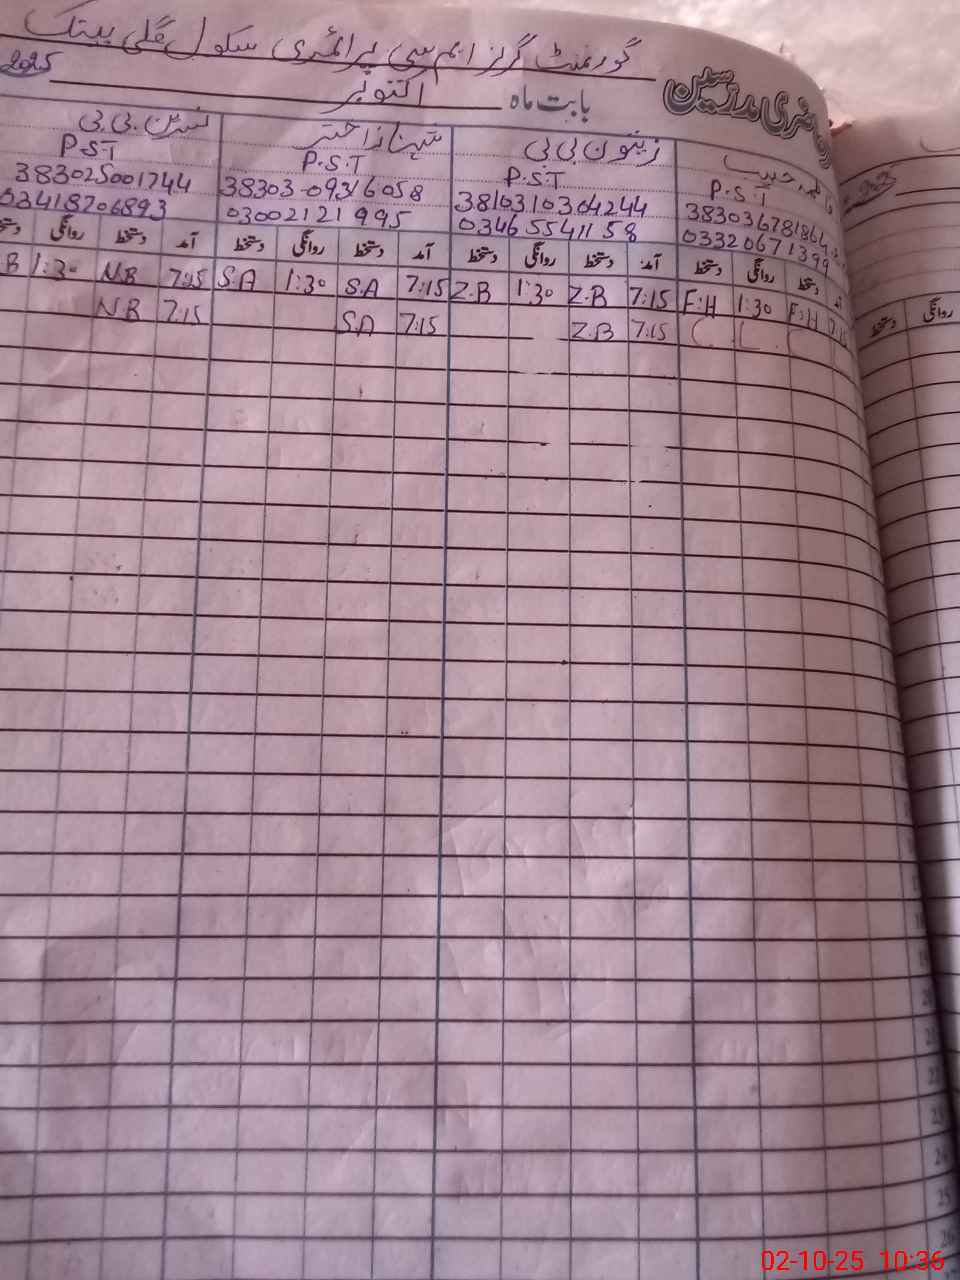 گورنمنٹ گرلز ایم سی پرائمری سکول گلی
حاضری مدرسین بابت ماہ اکتوبر 2025
حبیب زیتون بی بی شہناز اختر نسرین بی بی
P.S.T P.S.T P.S.T P.S.T
3830367818 3810310304244 38303-09316058 383025001744
0332067139 03465541158 03002121995 03418706893
آمد دستخط روانگی دستخط آمد دستخط روانگی دستخط آمد دستخط روانگی دستخط آمد دستخط روانگی
B 1:30 N.B 7:15 S.A 1:30 S.A 7:15 Z.B 1:30 Z.B 7:15 F:H 1:30 F:H 7:15
N.B 7:15 S.A 7:15 Z.B 7:15
2025
دستخط روانگی
20
22
23
24
25
26
02-10-25 10:36